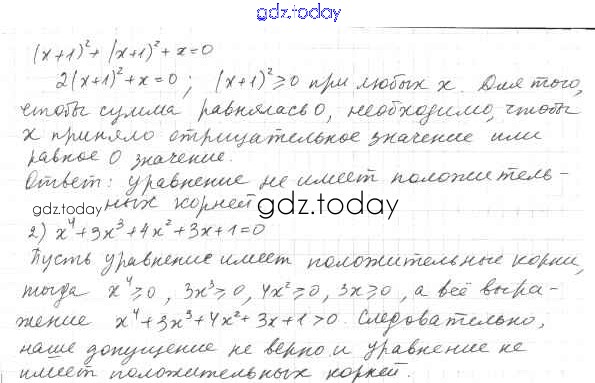 gdz.today
(x+1)²+(x+1)²+x=0
2(x+1)²+x=0; (x+1)²≥0 при любых x. Для того,
чтобы сумма равнялась 0, необходимо, чтобы
x приняло отрицательное значение или
равное 0 значение.
Ответ: уравнение не имеет положитель-
ных корней
gdz.today gdz.today
2) x⁴+3x³+4x²+3x+1=0
Пусть уравнение имеет положительные корни,
тогда x⁴≥0, 3x³≥0, 4x²≥0, 3x≥0, а всё выра-
жение x⁴+3x³+4x²+3x+1>0. Следовательно,
наше допущение не верно и уравнение не
имеет положительных корней.
gdz.today